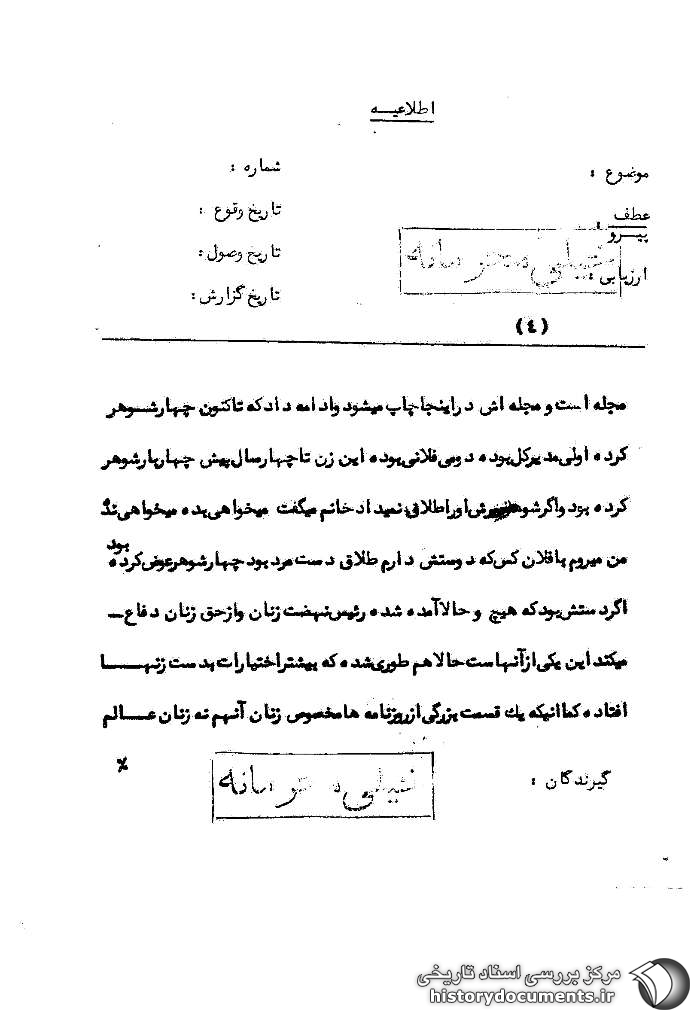 اطلاعیـــه
موضوع :
شماره :
عطف
پیـرو
تاریخ وقوع :
خیلی محرمانه
تاریخ وصول :
ارزیابی :
تاریخ گزارش :
(٤)
مجله است و مجله اش در اینجا چاپ میشود و ادامه داد که تاکنون چهار شـوهر
کرده اولی مدیرکل بوده دومی فلانی بوده این زن تا چهار سال پیش چهار بار شوهر
کرده بود و اگر شوهر او را طلاق نمیداد خانم میگفت میخواهی بده میخواهی نده
من میروم با فلان کس که دوستش دارم طلاق دست مرد بود چهار شوهر عوض کرده بود
اگر دستش بود که هیچ و حالا آمده شده رئیس نهضت زنان و از حق زنان دفاع ــ
میکند این یکی از آنهاست حالا هم طوری شده که بیشتر اختیارات بدست زنهـــا
افتاده کما اینکه یک قسمت بزرگی از روزنامه ها مخصوص زنان آنهم نه زنان عـــالم
گیرندگان :
خیلی محرمانه
٪
مرکز بررسی اسناد تاریخی
historydocuments.ir